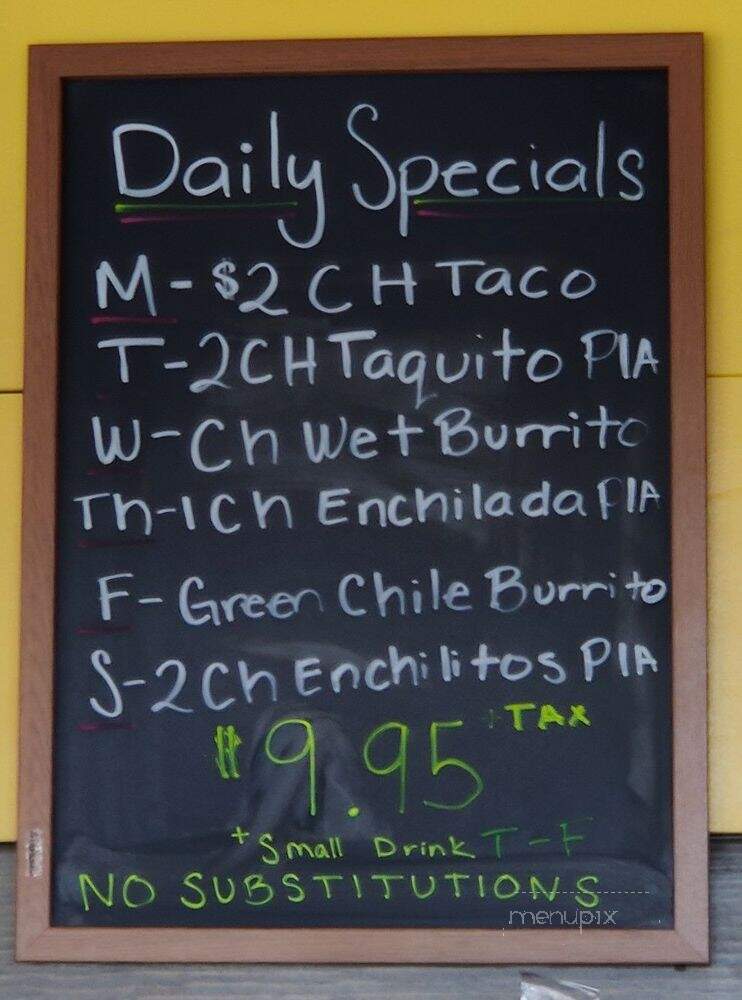 Daily Specials
M-$2 CH Taco
T-2CH Taquito PlA
W-Ch Wet Burrito
Th-1Ch Enchilada PlA
F-Green Chile Burrito
S-2Ch Enchilitos PlA
$9.95 + TAX
+ Small Drink T-F
NO SUBSTITUTIONS
menupix